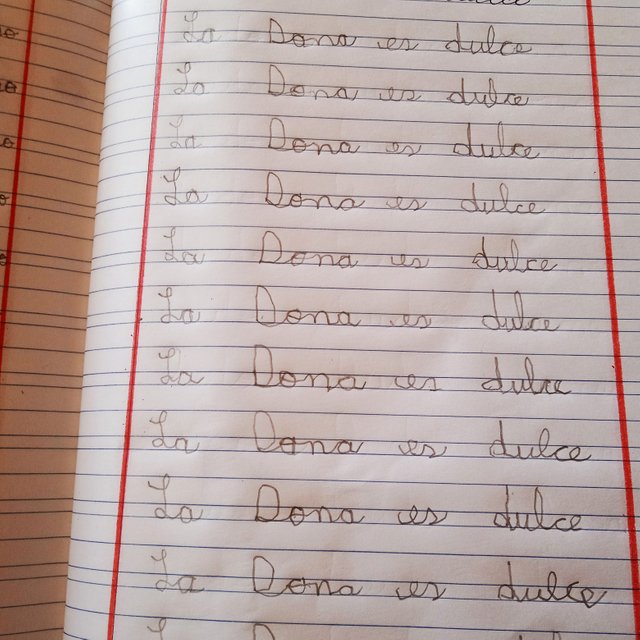 La Dona es dulce
La Dona es dulce
La Dona es dulce
La Dona es dulce
La Dona es dulce
La Dona es dulce
La Dona es dulce
La Dona es dulce
La Dona es dulce
La Dona es dulce